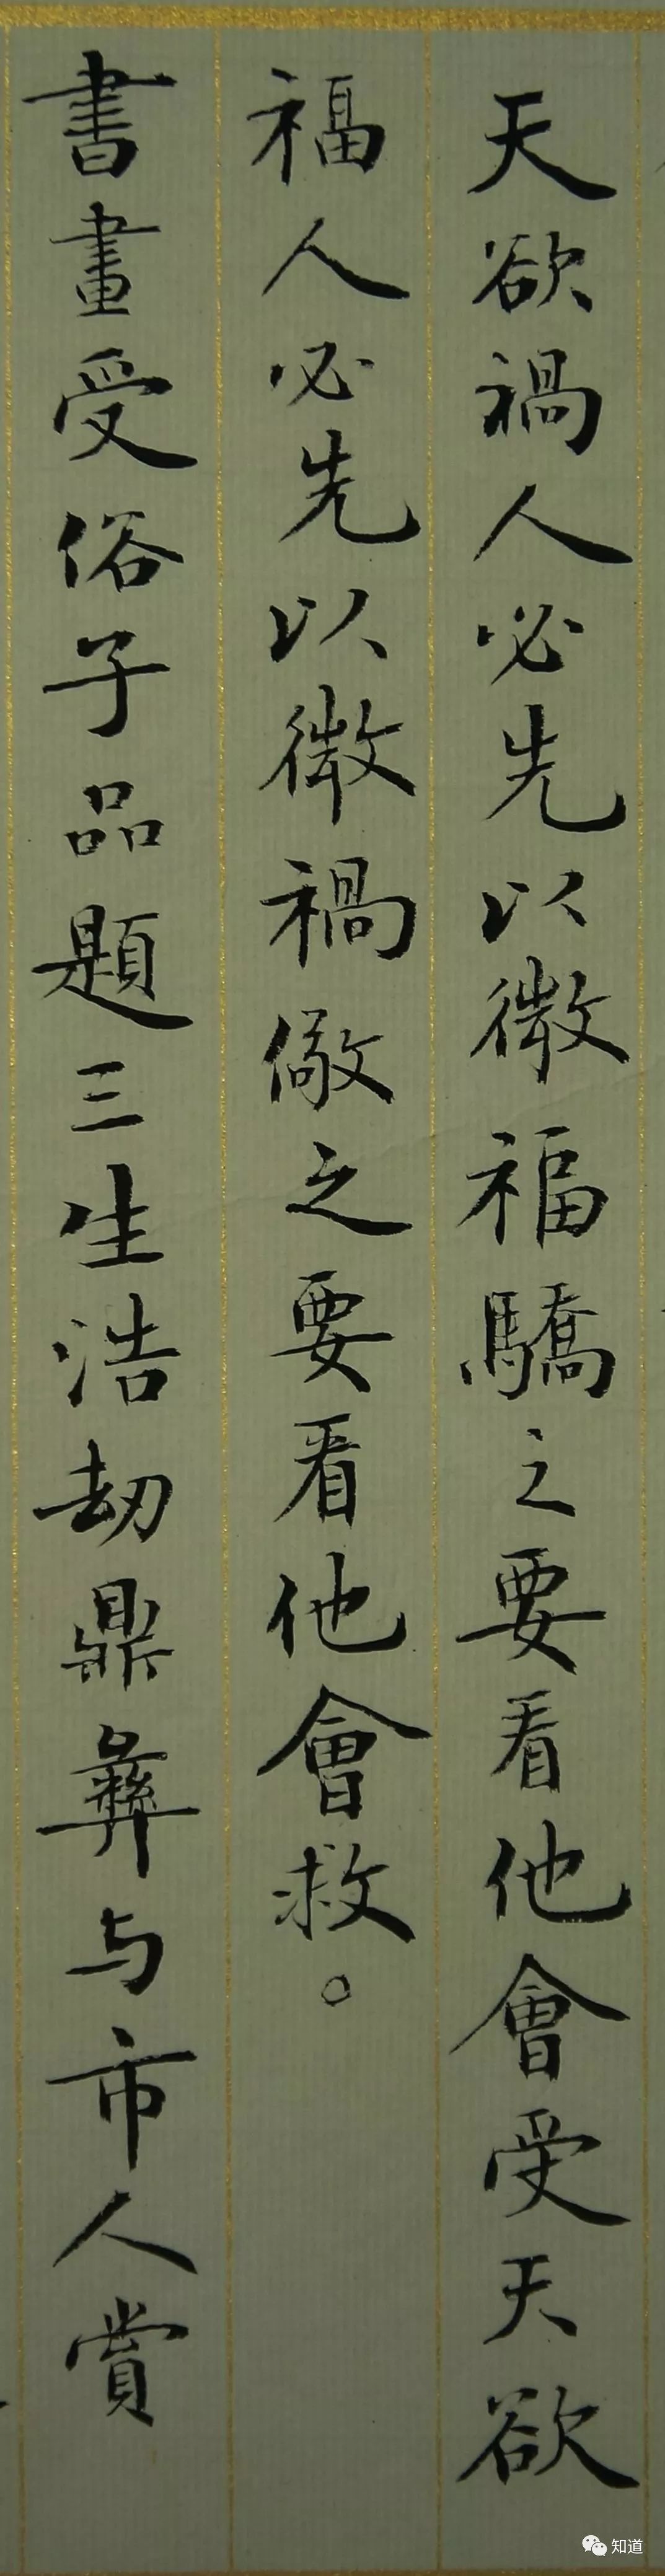 天欲禍人必先以微福驕之要看他會受天欲
福人必先以微禍儆之要看他會救。
書畫受俗子品題三生浩劫鼎彝与市人賞
知道